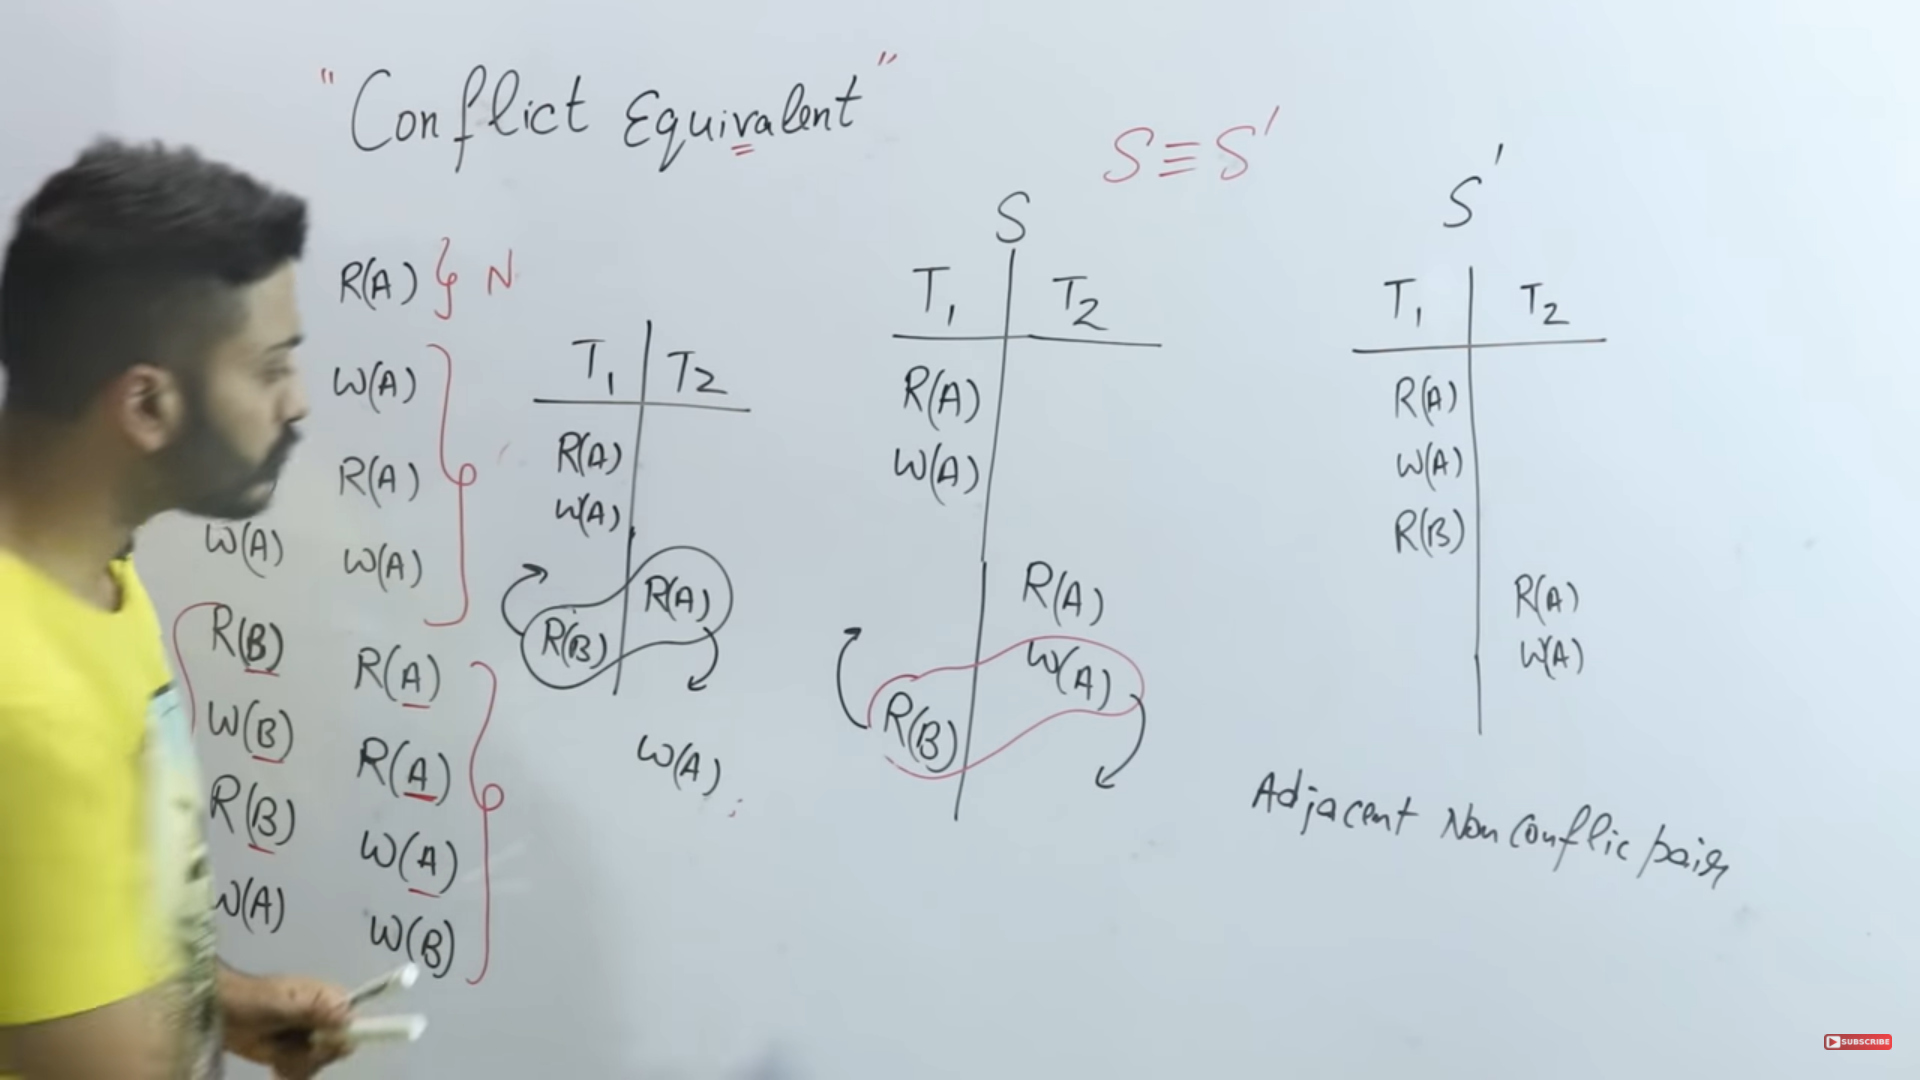 "Conflict Equivalent"
S≡S'
R(A) } N
W(A)
R(A)
W(A) W(A)
R(B) R(A)
W(B) R(A)
R(B) W(A)
W(A) W(B)
T1 T2
R(A)
W(A)
R(A)
R(B)
W(A)
S
T1 T2
R(A)
W(A)
R(A)
W(A)
R(B)
S'
T1 T2
R(A)
W(A)
R(B)
R(A)
W(A)
Adjacent Non Conflic pair
SUBSCRIBE